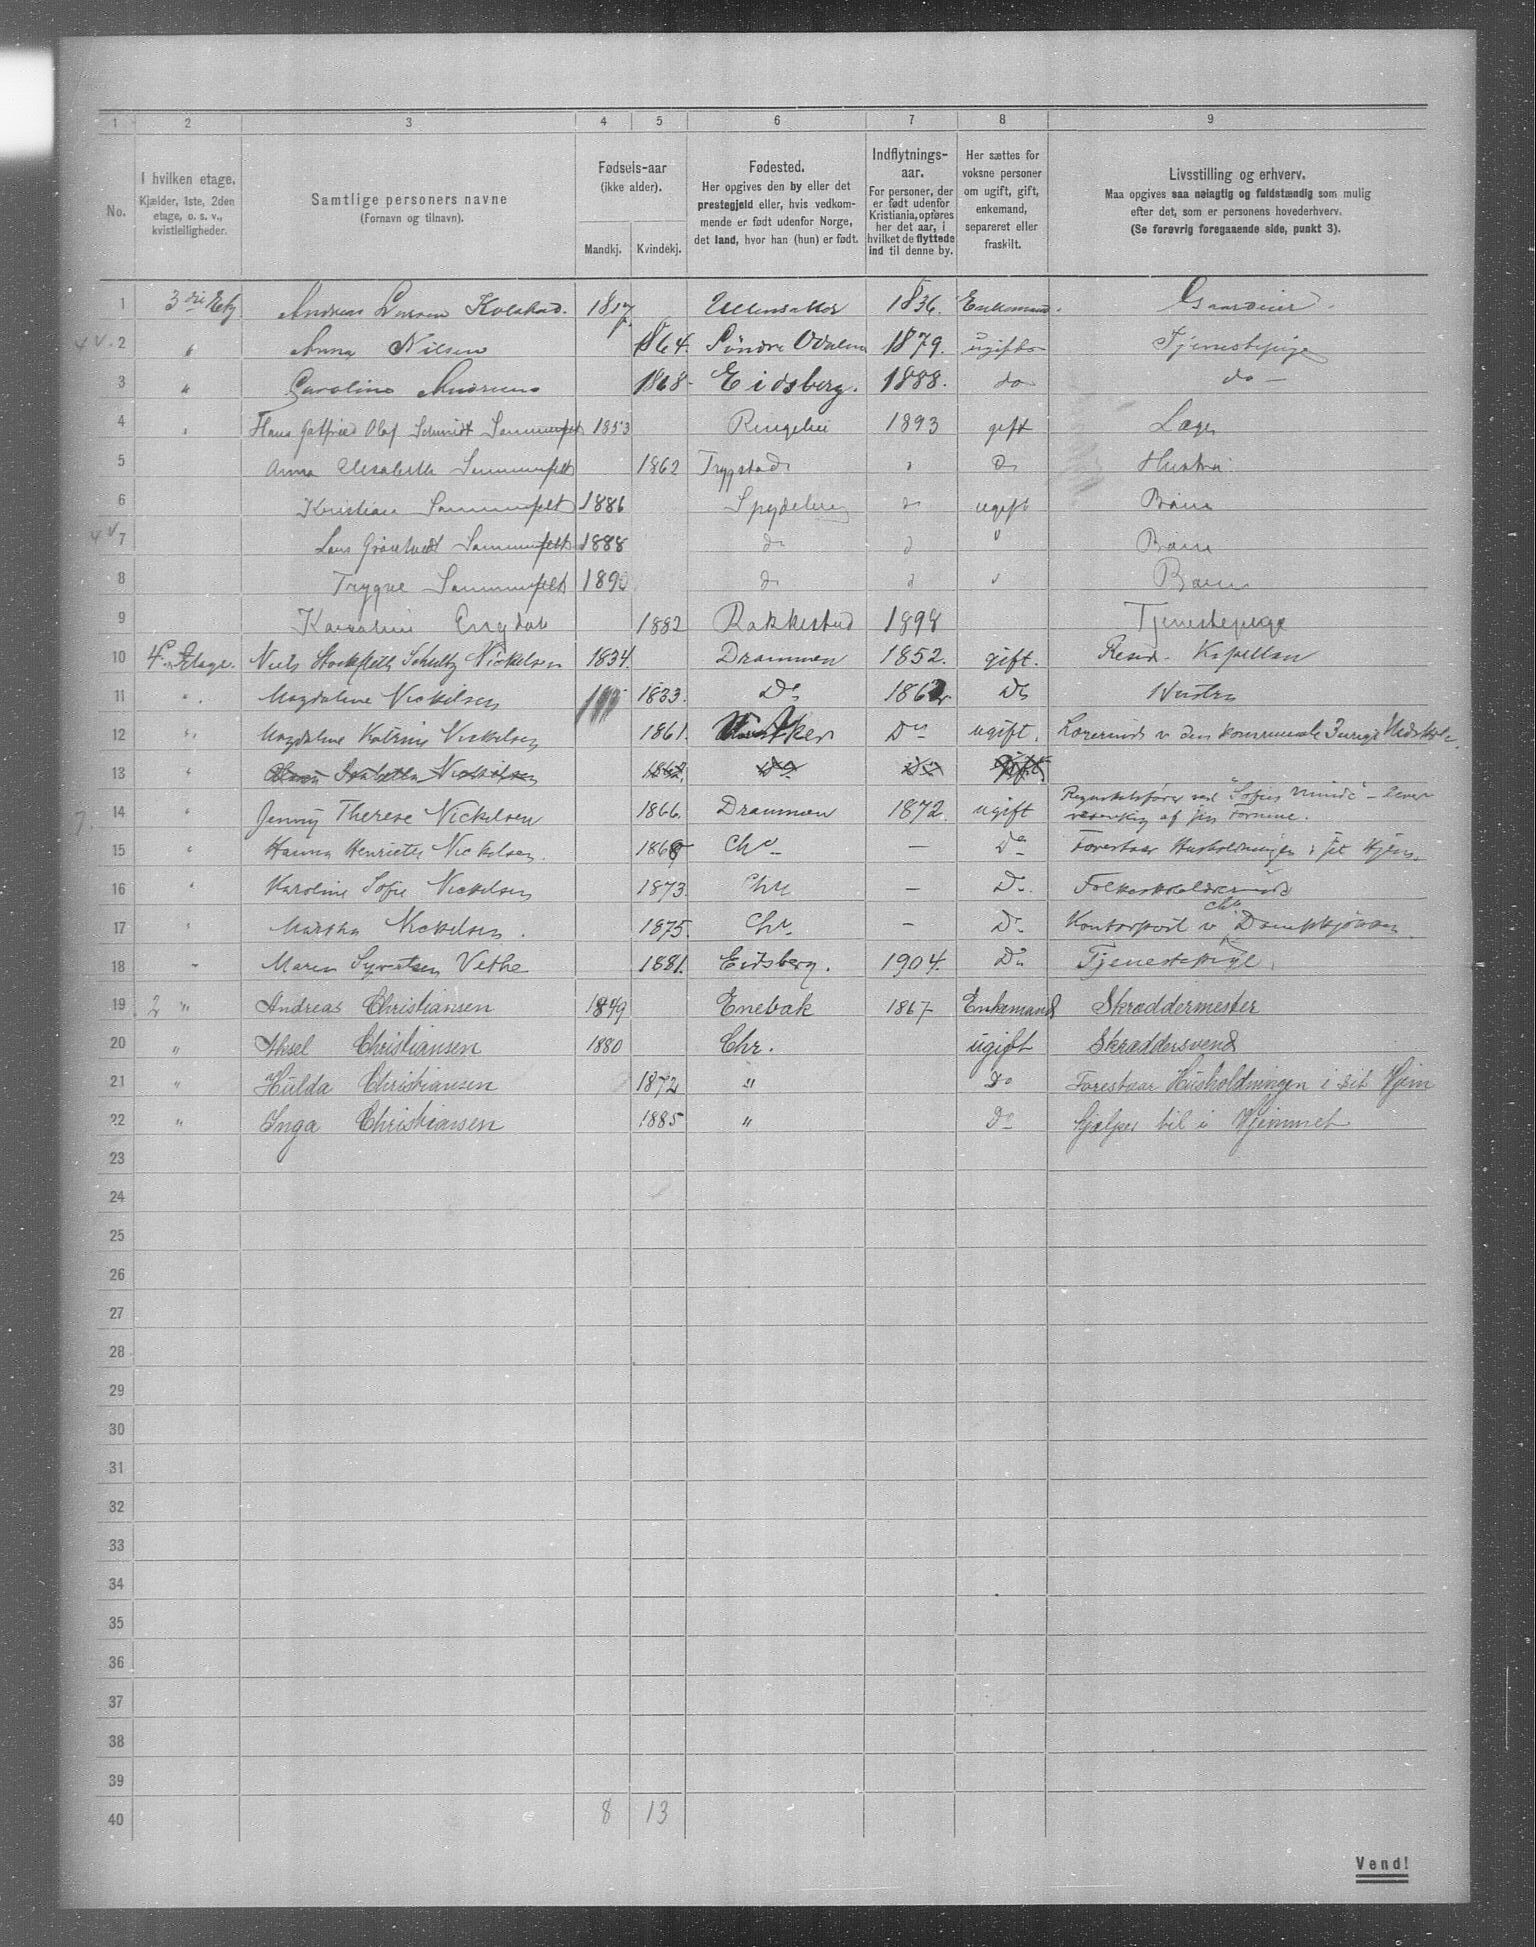 1 2 3 4 5 6 7 8 9
No.
I hvilken etage.
Kjælder, 1ste, 2den
etage, o. s. v.,
kvistleiligheder.
Samtlige personers navne
(Fornavn og tilnavn).
Fødsels-aar
(ikke alder).
Mandkj. Kvindekj.
Fødested.
Her opgives den by eller det
prestegjeld eller, hvis vedkom-
mende er født udenfor Norge,
det land, hvor han (hun) er født.
Indflytnings-
aar.
For personer, der
er født udenfor
Kristiania, opføres
her det aar, i
hvilket de flyttede
ind til denne by.
Her sættes for
voksne personer
om ugift, gift,
enkemand,
separeret eller
fraskilt.
Livsstilling og erhverv.
Maa opgives saa nøiagtig og fuldstændig som mulig
efter det, som er personens hovederhverv.
(Se forøvrig foregaaende side, punkt 3).
1 3die Etg Andreas Larsen Kolstad. 1817 Ullensaker 1836. Enkemand. Gaardeier.
2 " Anna Nilsen 1864. Söndre Odalen 1879. ugift Tjenestepige
3 " Caroline Andersen 1868 Eidsberg. 1888. do do
4 " Hans Gotfried Olaf Schmidt Sommerfelt 1853 Ringebu 1893 gift Læge
5 Anna Elisabeth Sommerfelt 1862 Trygstad " D Hustru
6 Kristian Sommerfelt 1886 Spydeberg " ugift Barn
7 Lars Sommerfelt 1888 do " " Barn
8 Trygve Sommerfelt 1890 do " " Barn
9 Karoline Engdal 1882 Rakkestad 1898 Tjenestepige
10 4. Etage. Niels Stockfleth Schultz Nickelsen 1834. Drammen 1852. gift. Resid. Kapellan
11 " Magdaline Nickelsen 1833. Do 1862 Do Hustru
12 " Magdaline Katrine Nickelsen 1861. Aker Do ugift. Lærerinde v den kommunale
13 " Nickelsen 1862. Do Do gift
14 " Jenny Therese Nickelsen 1866. Drammen 1872. ugift Regnskabsfører ved "Sofies Minde" –
af sin Formue.
15 " Hanna Henriette Nickelsen. 1868 Chra – Do Forestaar Husholdningen i sit Hjem.
16 " Karoline Sofie Nickelsen 1873. Chra – Do. Folkeskolelærerinde
17 " Martha Nickelsen. 1875. Chra. – Do Kontorpost v Chra Dampkjøkken
18 " Maren Syvertsen Vethe 1881. Eidsberg. 1904. Do Tjenestepige.
19 2 " Andreas Christiansen 1849 Enebak 1867 Enkemand Skræddermester
20 " Aksel Christiansen 1880 Chr. ugift Skræddersvend
21 " Hulda Christiansen 1872 " Do Forestaar Husholdningen i sit Hjem
22 " Inga Christiansen 1885 " Do Hjælper til i Hjemmet
23
24
25
26
27
28
29
30
31
32
33
34
35
36
37
38
39
40 8 13
Vend!